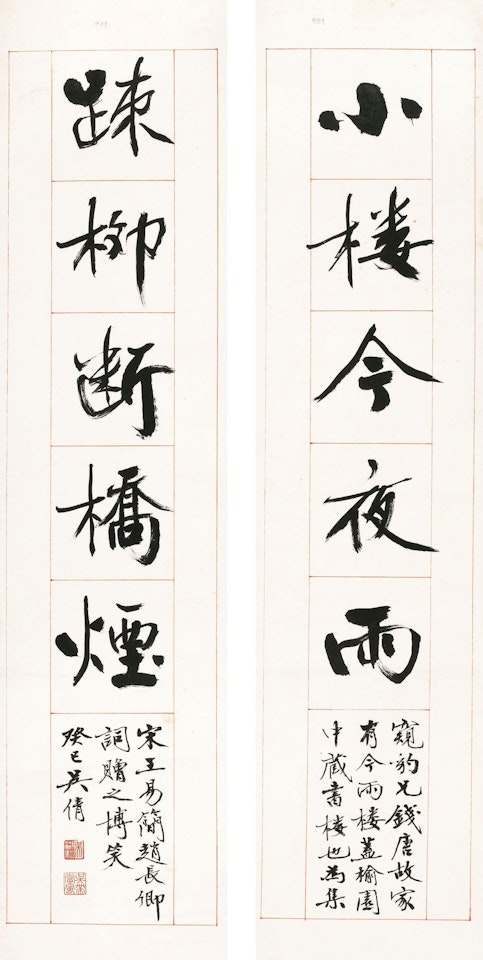 小楼今夜雨
窺豹兄錢唐故家
有今雨楼蓋榆園
中藏書楼也為集
踈柳断橋煙
宋王易簡趙長卿
詞贈之博笑
癸巳吳倩